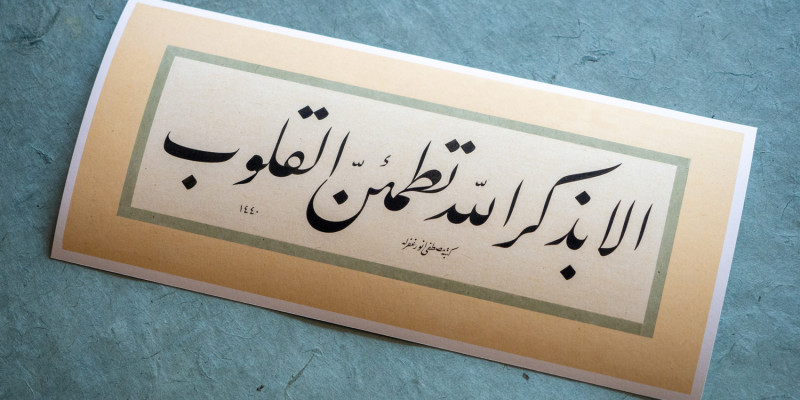 الا بذكر الله تطمئنّ القلوب
كتبه مصطفى انور غفرله
١٤٤٠